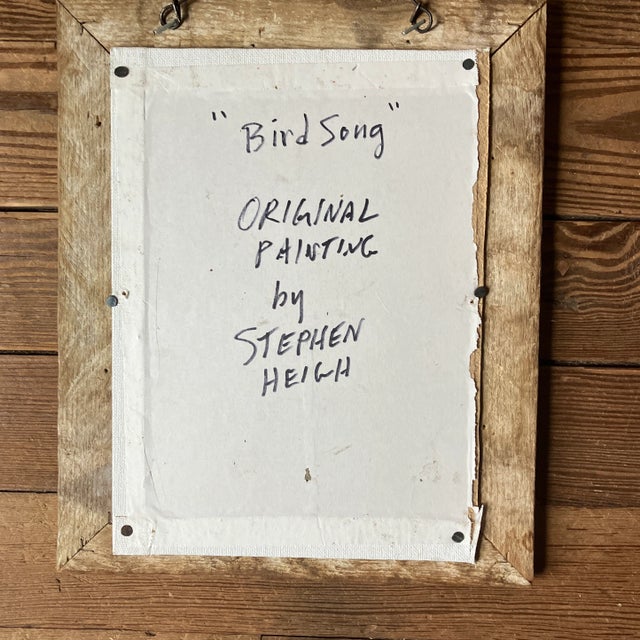 "Bird Song"
ORIGINAL
PAINTING
by
STEPHEN
HEIGH